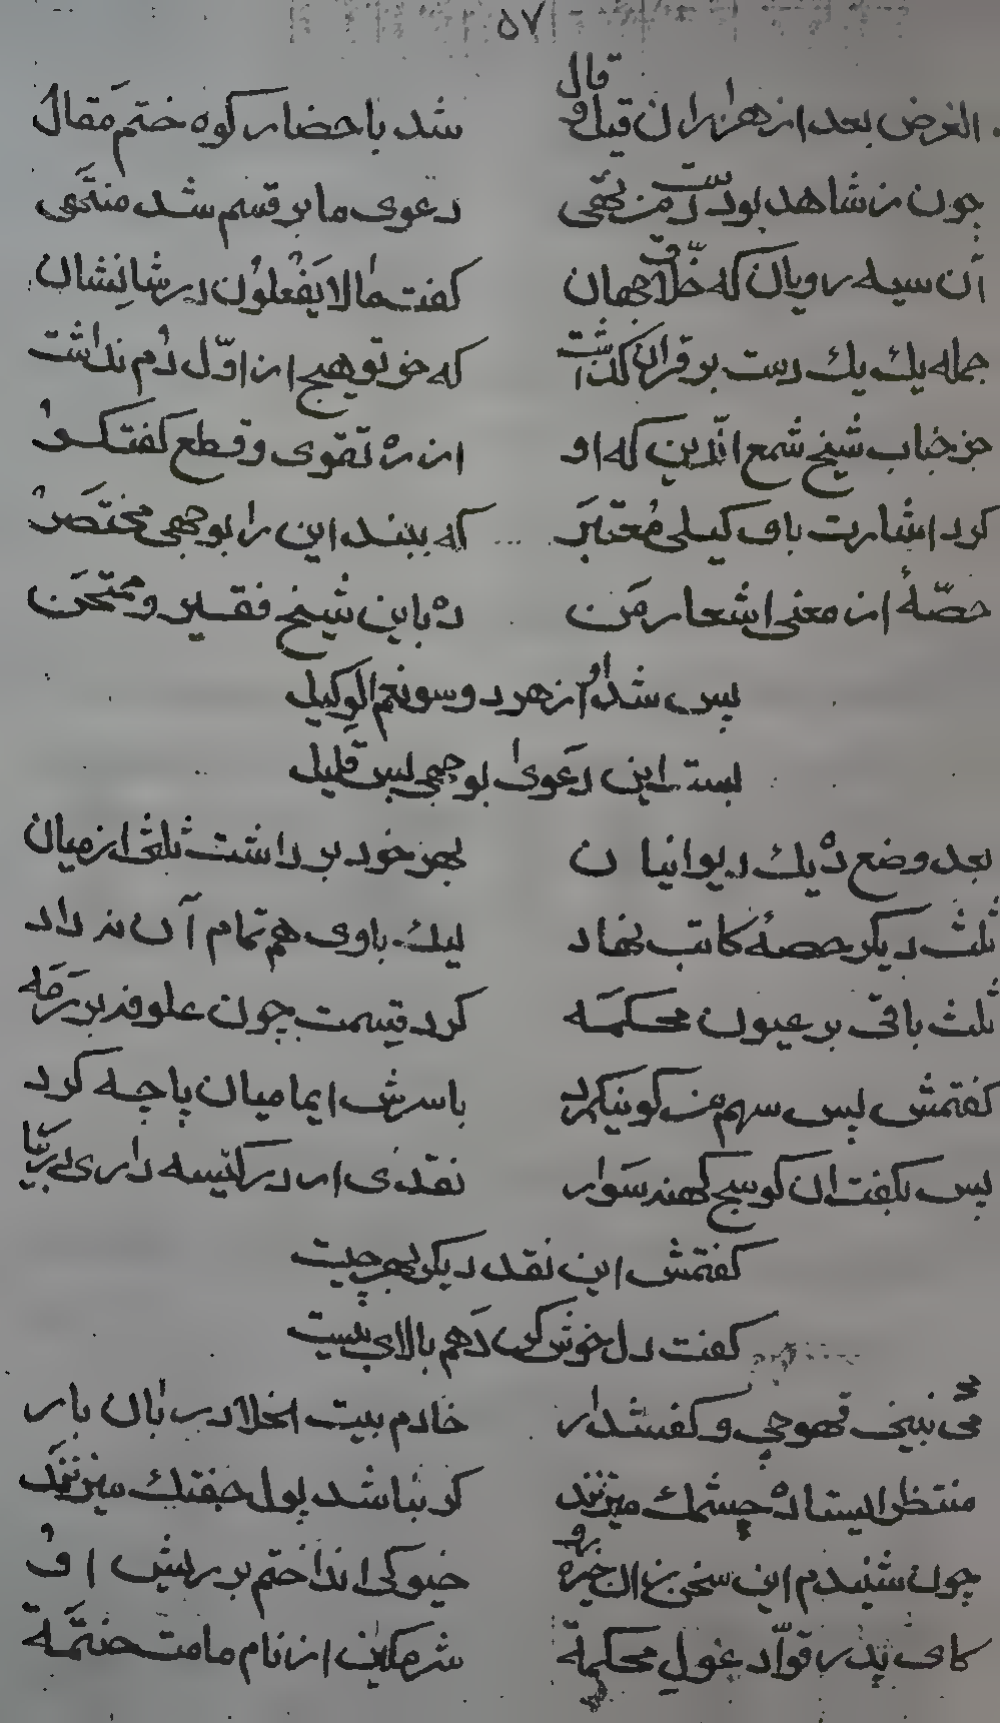 ۵۷
الغرض بعد از هزاران قیل و قال شد باحضار کوه ختم مقال
چون ز شاهد بود دست من تهی دعوی ما بر قسم شد منتهی
آن سیه رویان که خلاق جهان کفت ما لا یفعلون در شانشان
جمله یك یك دست بر قران کذاشت که خر تو هیچ از اول دم نداشت
جز جناب شیخ شمع الدین که او از ره تقوی وقطع کفتکو
کرد اشارت با وکیلی معتبر که ببند این را بوجهی مختصر
حصهٔ از معنی اشعار من ده باین شیخ فقیر و ممتحن
پس شد او از هر دو سو نعم الوکیل
بست این دعوی بوجهی بس قلیل
بعد وضع ده یك دیوانیان بهر خود بر داشت ثلثی از میان
ثلث دیکر حصهٔ کاتب نهاد لیك باوی هم تمام آن نداد
ثلث باقی بر عیون محکمه کرد قسمت چون علوفه بر رمه
کفتمش پس سهم من کو نیکمرد باسرش ایما میان پاچه کرد
پس بکفت ان کوسج کهنه سوار نقدی ار در کیسه داری
کفتمش این نقد دیکر بهر چیست
کفت دل خوش کن دهم بالای بیست
می نبینی قهوچی و کفشدار خادم بیت الخلا دربان بار
منتظر ایستاده چشمك میزنند کر نباشد پول جفتك میزنند
چون شنیدم این سخن زان خیره رو خیوکی انداختم بر ریش او
کای پدر قواد غول محکمة شرمکین از نام مامت